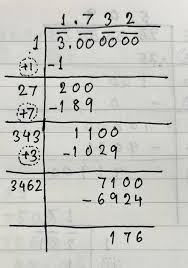 1.732
1 3.000000
+1 -1
27 200
+7 -189
343 1100
+3 -1029
3462 7100
-6924
176